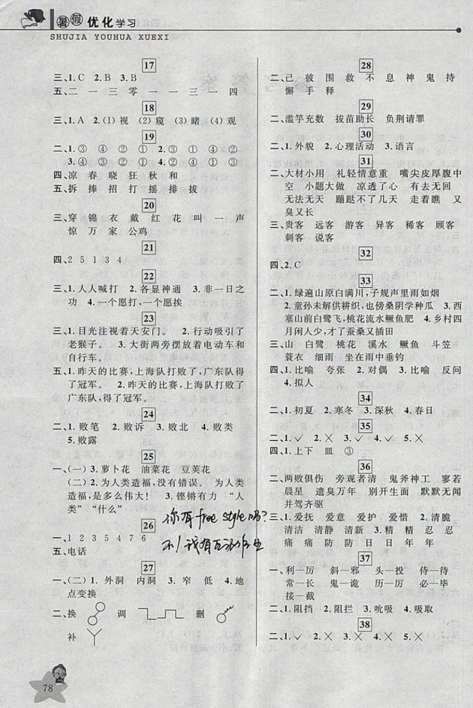 暑假优化学习
SHUJIA YOUHUA XUEXI
17
三、1.C 2.B 3.B
五、二 一 三 零 一 一 三 一 四
18
三、1.A 2.(1)视 (2)窥 (3)睹 (4)观
19
二、1.③ ④ ② ① 2.④ ① ② ③
3.④ ① ② ③ 4.④ ① ③ ②
四、凉 春 晓 狂 秋 和
五、拆 捧 招 打 摇 排 拔
20
三、穿 锦 衣 戴 红 花 叫 一 声
惊 万 家 公鸡
21
四、2 5 1 3 4
22
三、1.人人喊打 2.各显神通 3.非一日之
功 4.一个愿打,一个愿挨
23
三、1.目光注视着天安门。 2.行动吸引了
老猴子。 3.大街两旁摆放着电动车和
自行车。
五、1.昨天的比赛,上海队打败了,广东队得
了冠军。 2.昨天的比赛,上海队打败了
广东队,得了冠军。
24
四、1.败笔 2.败诉 3.败北 4.败类
5.败露
25
二、(一)3.萝卜花 油菜花 豆荚花
(二)1.为人类造福,没有错误。 为人类
造福,是多么神圣! 3.铿锵有力 “人
类” “什么”
26
一、1 2 3 5 4 7 6
五、电话
你有free style吗?
27
一、(二)1.外洞 内洞 3.窄 低 4.地
点变换
二、换 调 删
补
28
二、己 彼 围 救 不 息 神 鬼 待
懈 手 释
29
二、滥竽充数 拔苗助长 负荆请罪
30
二、1.外貌 2.心理活动 3.语言
31
二、大材小用 礼轻情意重 嘴尖皮厚腹中
空 小题大做 凉透了心 有去无回
无法无天 蹦跶不了几天 走着瞧 又
臭又长
三、贵客 远客 游客 异客 稀客 顾客
刺客 说客
32
四、2.C
33
二、1.绿遍山原白满川,子规声里雨如烟
2.童孙未解供耕织,也傍桑阴学种瓜 3.西
塞山前白鹭飞,桃花流水鳜鱼肥 4.乡村四
月闲人少,才了蚕桑又插田
三、山 白鹭 桃花 溪水 鳜鱼 斗笠
蓑衣 细雨 坐在雨中垂钓
四、1.比喻 夸张 2.对偶 3.比喻 反问
4.拟人
34
二、1.初夏 2.寒冬 3.深秋 4.春日
35
二、1.✓ 2.✓ 3.✓ 4.✓ 5.✕
四、1.上下 皿 ③
36
二、两败俱伤 旁观者清 鬼斧神工 寥若
晨星 遗臭万年 别开生面 默默无闻
并驾齐驱
三、1.爱抚 爱尚 爱护 爱惜 2.清脆
清洁 清静 清新 3.丁 真 精 忍
痛 痛 防 防 日 日 年 年
37
一、1.利—厉 斜—邪 头—投 侍—待
常—长 竟—究 历—厉 必—毕
接—截
二、1.阻挡 2.阻拦 3.吮吸 4.吸取
38
二、1.✓ 2.✕ 3.✕ 4.✕
78